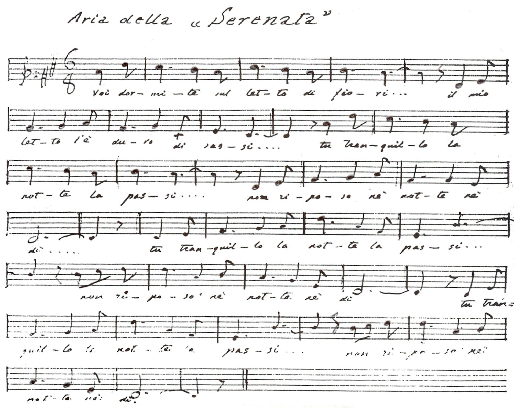 Aria della „Serenata”
6/8
Voi dor-mi-te sul let-to di fio-ri... il mio
let-to l'è du-ro di sas-si.... tu tran-quil-lo la
not-te la pas-si.... non ri-po-so nè not-te nè
dì..... tu tran-quil-lo la not-te la pas-si...
non ri-po-so nè not-te nè dì tu tran-
quil-lo la not-te la pas-si... non ri-po-so nè
not-te nè dì.